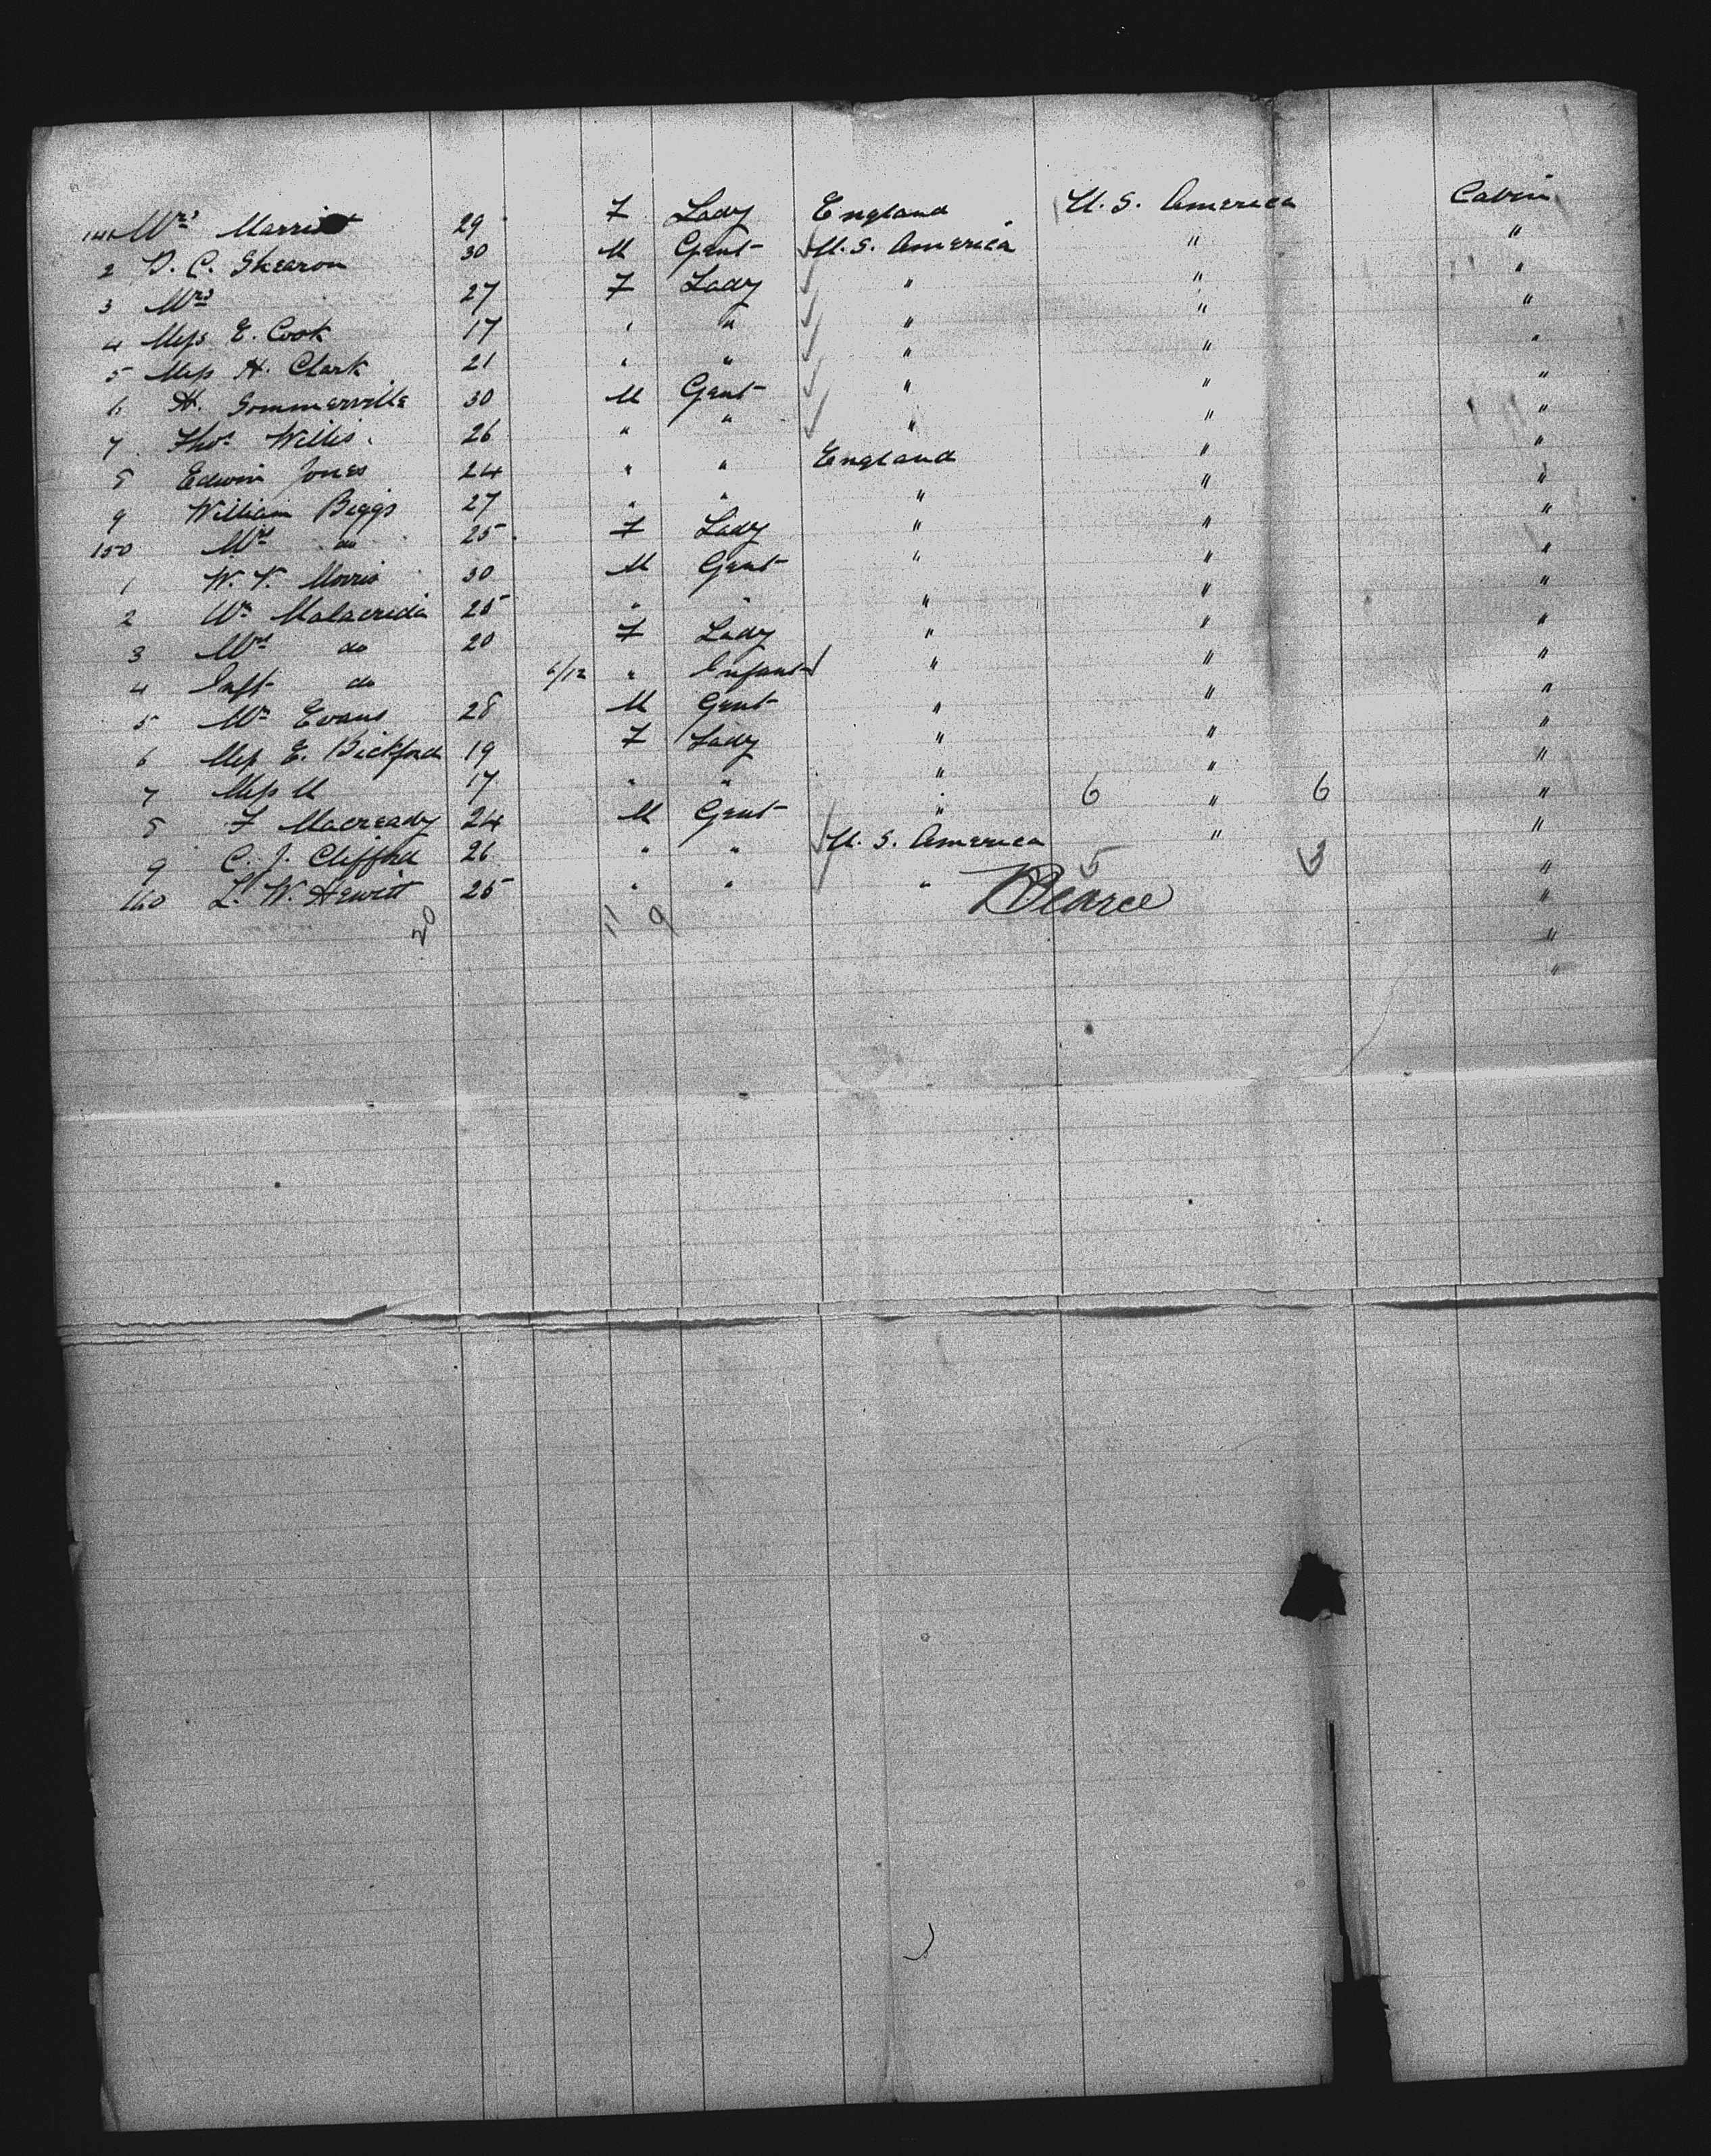 141 Mrs Marriot 29 F Lady England U.S. America Cabin
2 D. C. Shearon 30 M Gent U.S. America " "
3 Mrs 27 F Lady " " "
4 Miss E. Cook 17 " " " " "
5 Miss H. Clark 21 " " " " "
6 H. Sommerville 30 M Gent " " "
7 Thos Willis 26 " " " " "
8 Edwin Jones 24 " " England " "
9 William Biggs 27 " " " " "
150 Mrs do 25 F Lady " " "
1 W. V. Morris 30 M Gent " " "
2 Mr Malacrida 25 " " " " "
3 Mrs do 20 F Lady " " "
4 Inft do 6/12 " Infant " " "
5 Mr Evans 28 M Gent " " "
6 Miss E. Bickford 19 F Lady " " "
7 Miss M 17 " " " " "
8 F Macready 24 M Gent " 6 " 6 "
9 C. J. Clifford 26 " " U. S. America " "
160 L. W. Hewitt 25 " " " 5 3 "
20 11 9 Pearce "
"
"